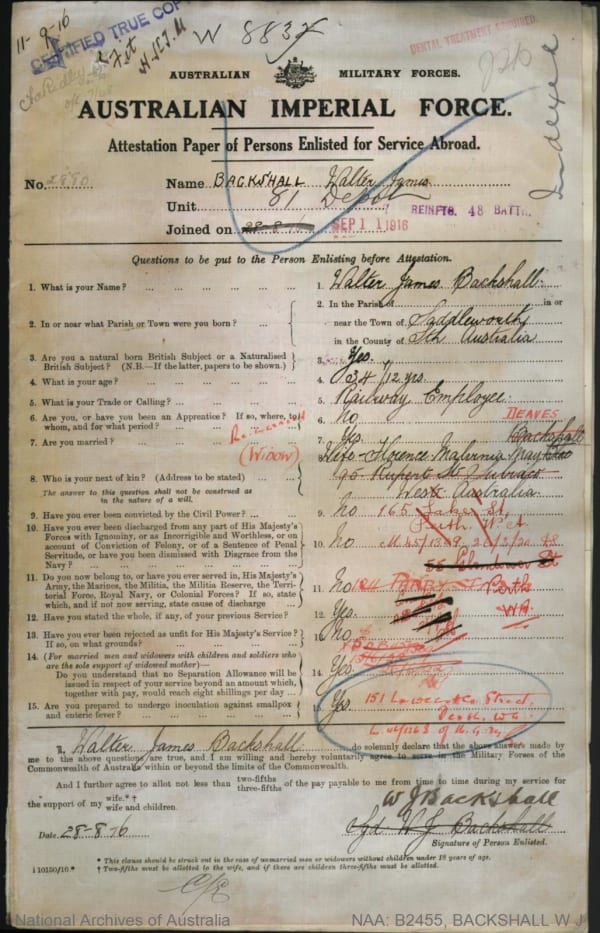 11-9-16
CERTIFIED TRUE COPY
W 8837
DENTAL TREATMENT REQUIRED.
Indexed
AUSTRALIAN MILITARY FORCES.
AUSTRALIAN IMPERIAL FORCE.
Attestation Paper of Persons Enlisted for Service Abroad.
No. 2880 Name BACKSHALL Walter James
Unit 81 Depot REINFTS. 48 BATTN.
Joined on 28-8-16 SEP 11 1916
Questions to be put to the Person Enlisting before Attestation.
1. What is your Name? 1. Walter James Backshall
2. In or near what Parish or Town were you born? 2. In the Parish of in or
near the Town of Saddleworth
in the County of Sth Australia
3. Are you a natural born British Subject or a Naturalised
British Subject? (N.B.—If the latter, papers to be shown.) 3. Yes.
4. What is your age? 4. 34 /12 yrs.
5. What is your Trade or Calling? 5. Railway Employee
6. Are you, or have you been an Apprentice? If so, where, to
whom, and for what period? 6. No DEAVES
7. Are you married? (WIDOW) 7. Yes. Backshall
8. Who is your next of kin? (Address to be stated) 8. Wife - Florence May
The answer to this question shall not be construed as
in the nature of a will.
95 Rupert St Subiaco
West Australia
9. Have you ever been convicted by the Civil Power? 9. No 165 Lake St,
Perth W.A
10. Have you ever been discharged from any part of His Majesty's
Forces with Ignominy, or as Incorrigible and Worthless, or on
account of Conviction of Felony, or of a Sentence of Penal
Servitude, or have you been dismissed with Disgrace from the
Navy? 10. No
11. Do you now belong to, or have you ever served in, His Majesty's
Army, the Marines, the Militia, the Militia Reserve, the Terri-
torial Force, Royal Navy, or Colonial Forces? If so, state
which, and if not now serving, state cause of discharge 11. No PARRY ST Perth
12. Have you stated the whole, if any, of your previous Service? 12. Yes. WA.
13. Have you ever been rejected as unfit for His Majesty's Service?
If so, on what grounds? 13. No
14. (For married men and widowers with children and soldiers who
are the sole support of widowed mother)—
Do you understand that no Separation Allowance will be
issued in respect of your service beyond an amount which,
together with pay, would reach eight shillings per day 14. Yes.
15. Are you prepared to undergo inoculation against smallpox
and enteric fever? 15. Yes. 151 Street,
Perth. W.A.
I, Walter James Backshall do solemnly declare that the above answers made by
me to the above questions are true, and I am willing and hereby voluntarily agree to serve in the Military Forces of the
Commonwealth of Australia within or beyond the limits of the Commonwealth.
And I further agree to allot not less than two-fifths three-fifths of the pay payable to me from time to time during my service for
the support of my wife.*† wife and children.
W J Backshall
Sgd W. J. Backshall
Date 28-8-16 Signature of Person Enlisted.
* This clause should be struck out in the case of unmarried men or widowers without children under 18 years of age.
† Two-fifths must be allotted to the wife, and if there are children three-fifths must be allotted.
National Archives of Australia NAA: B2455, BACKSHALL W J